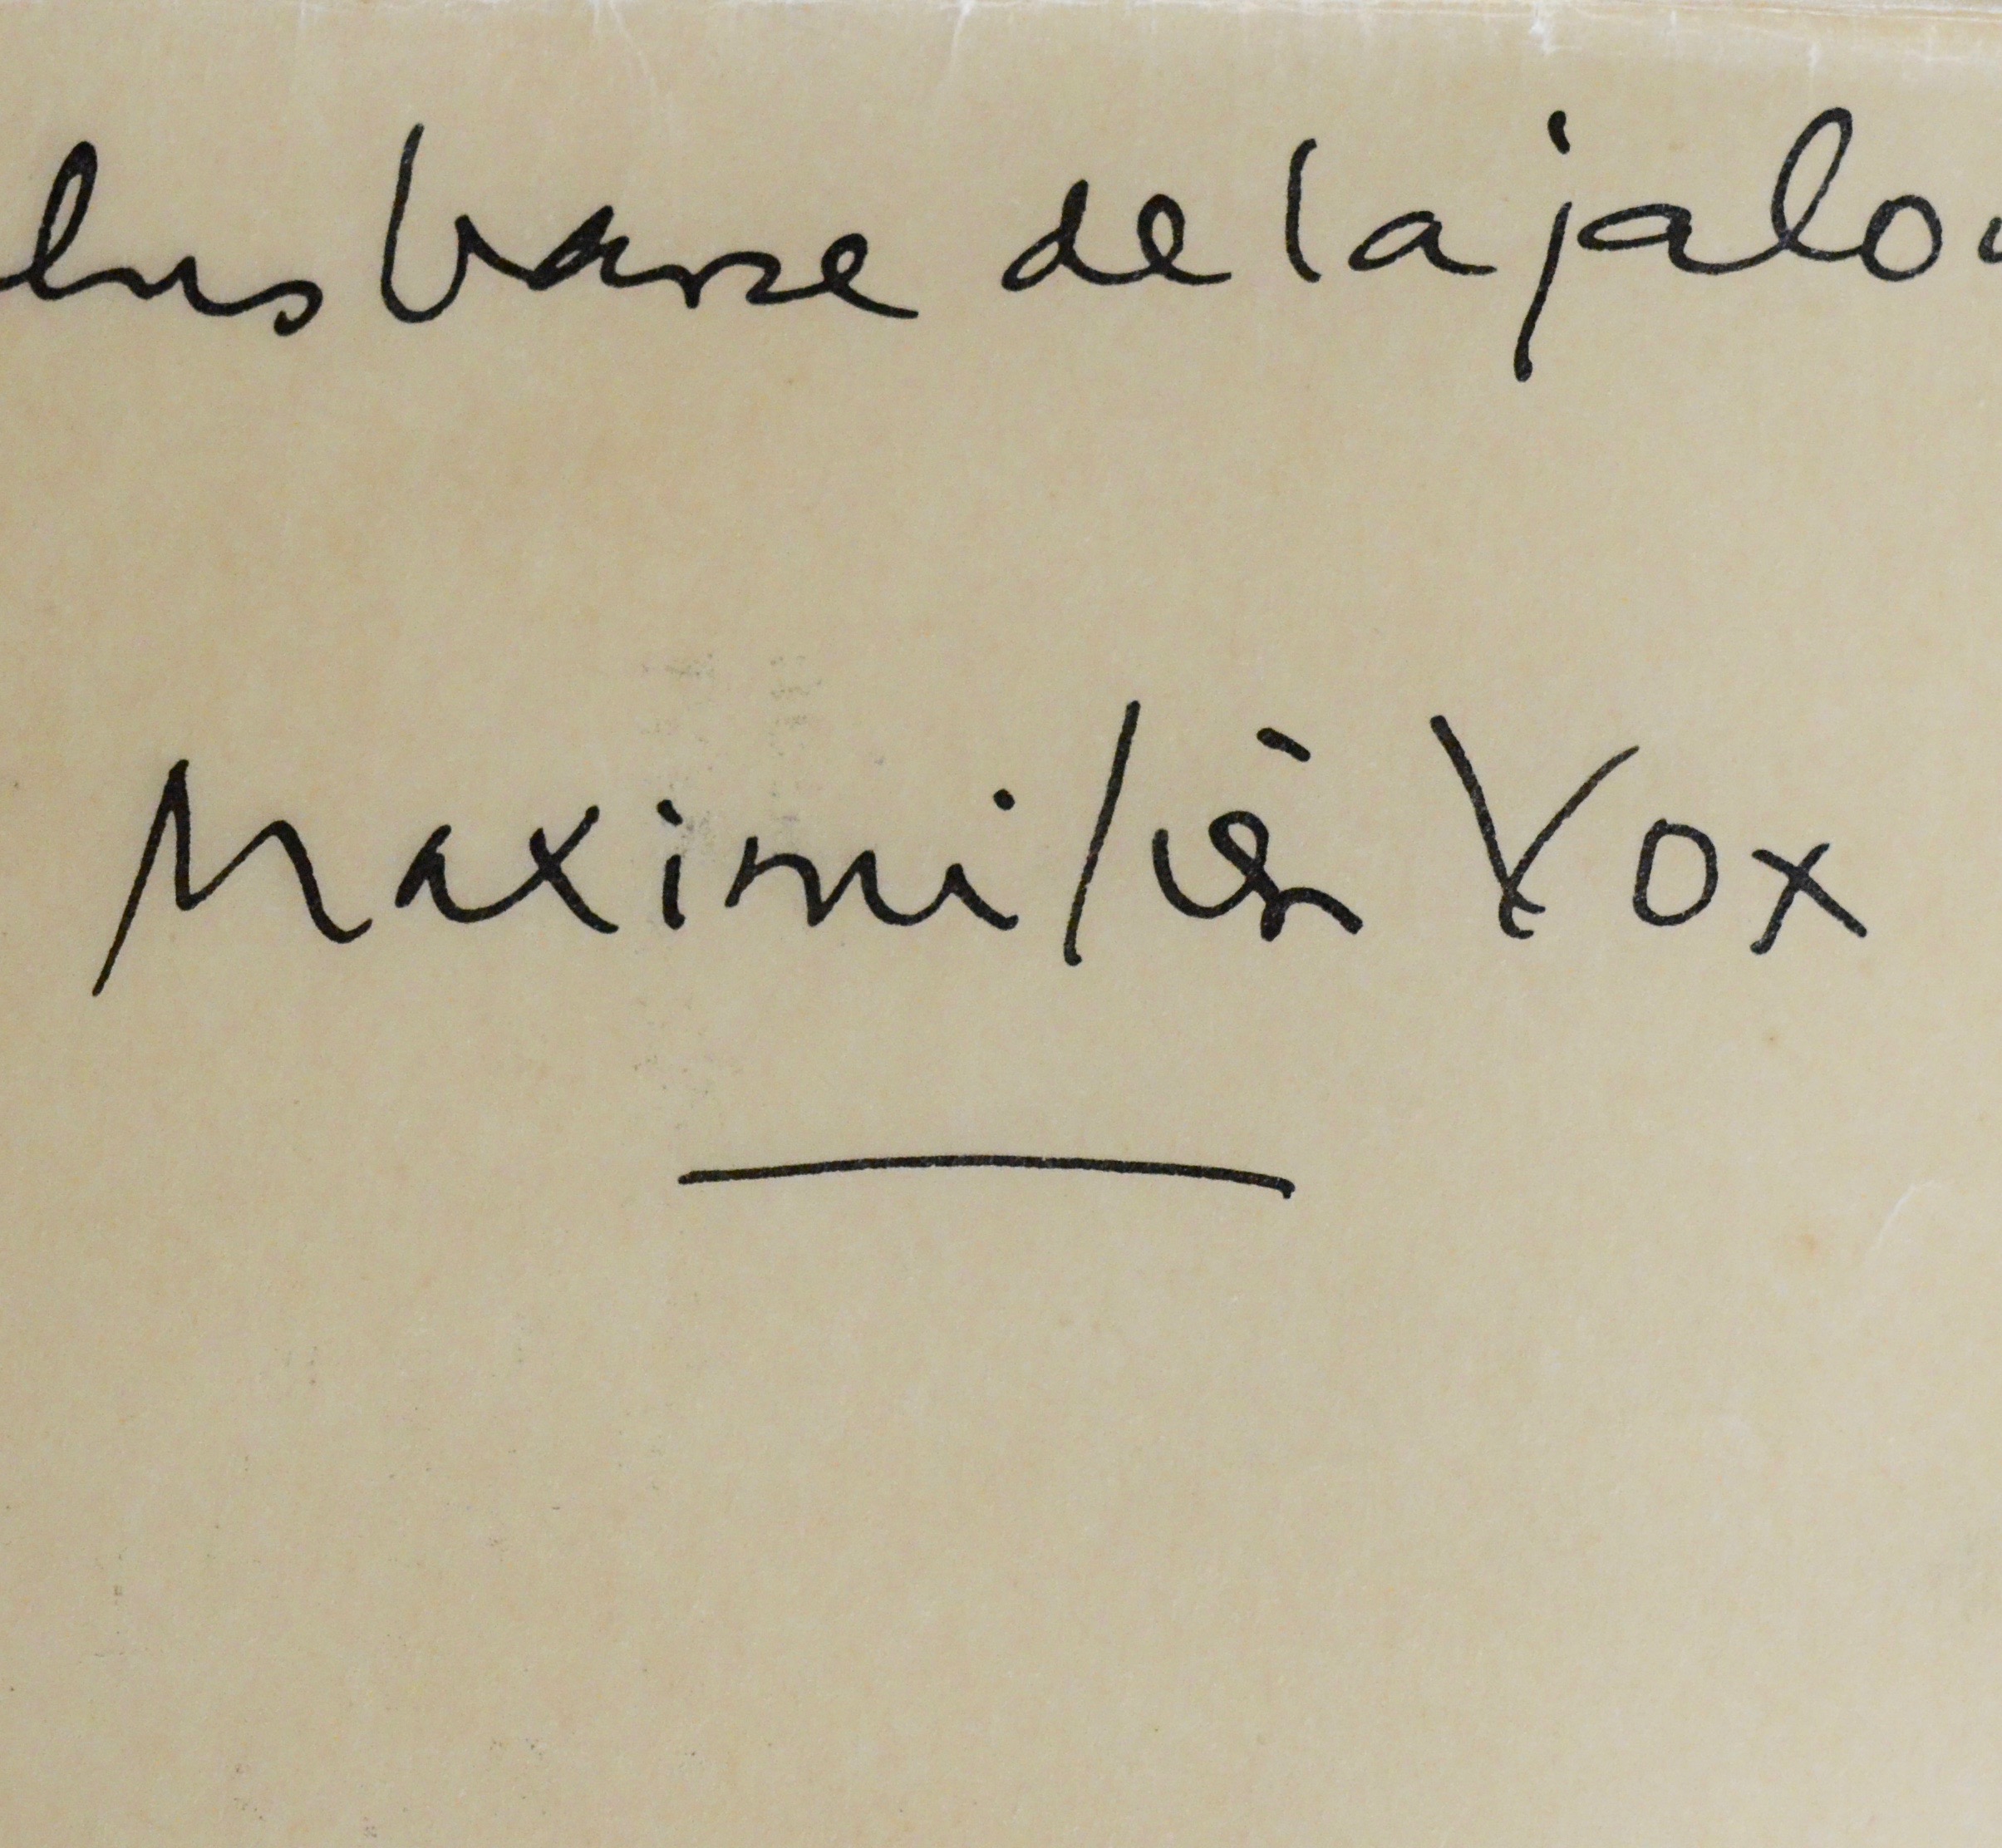 lus basse de la jalou
Maximilièn Vox